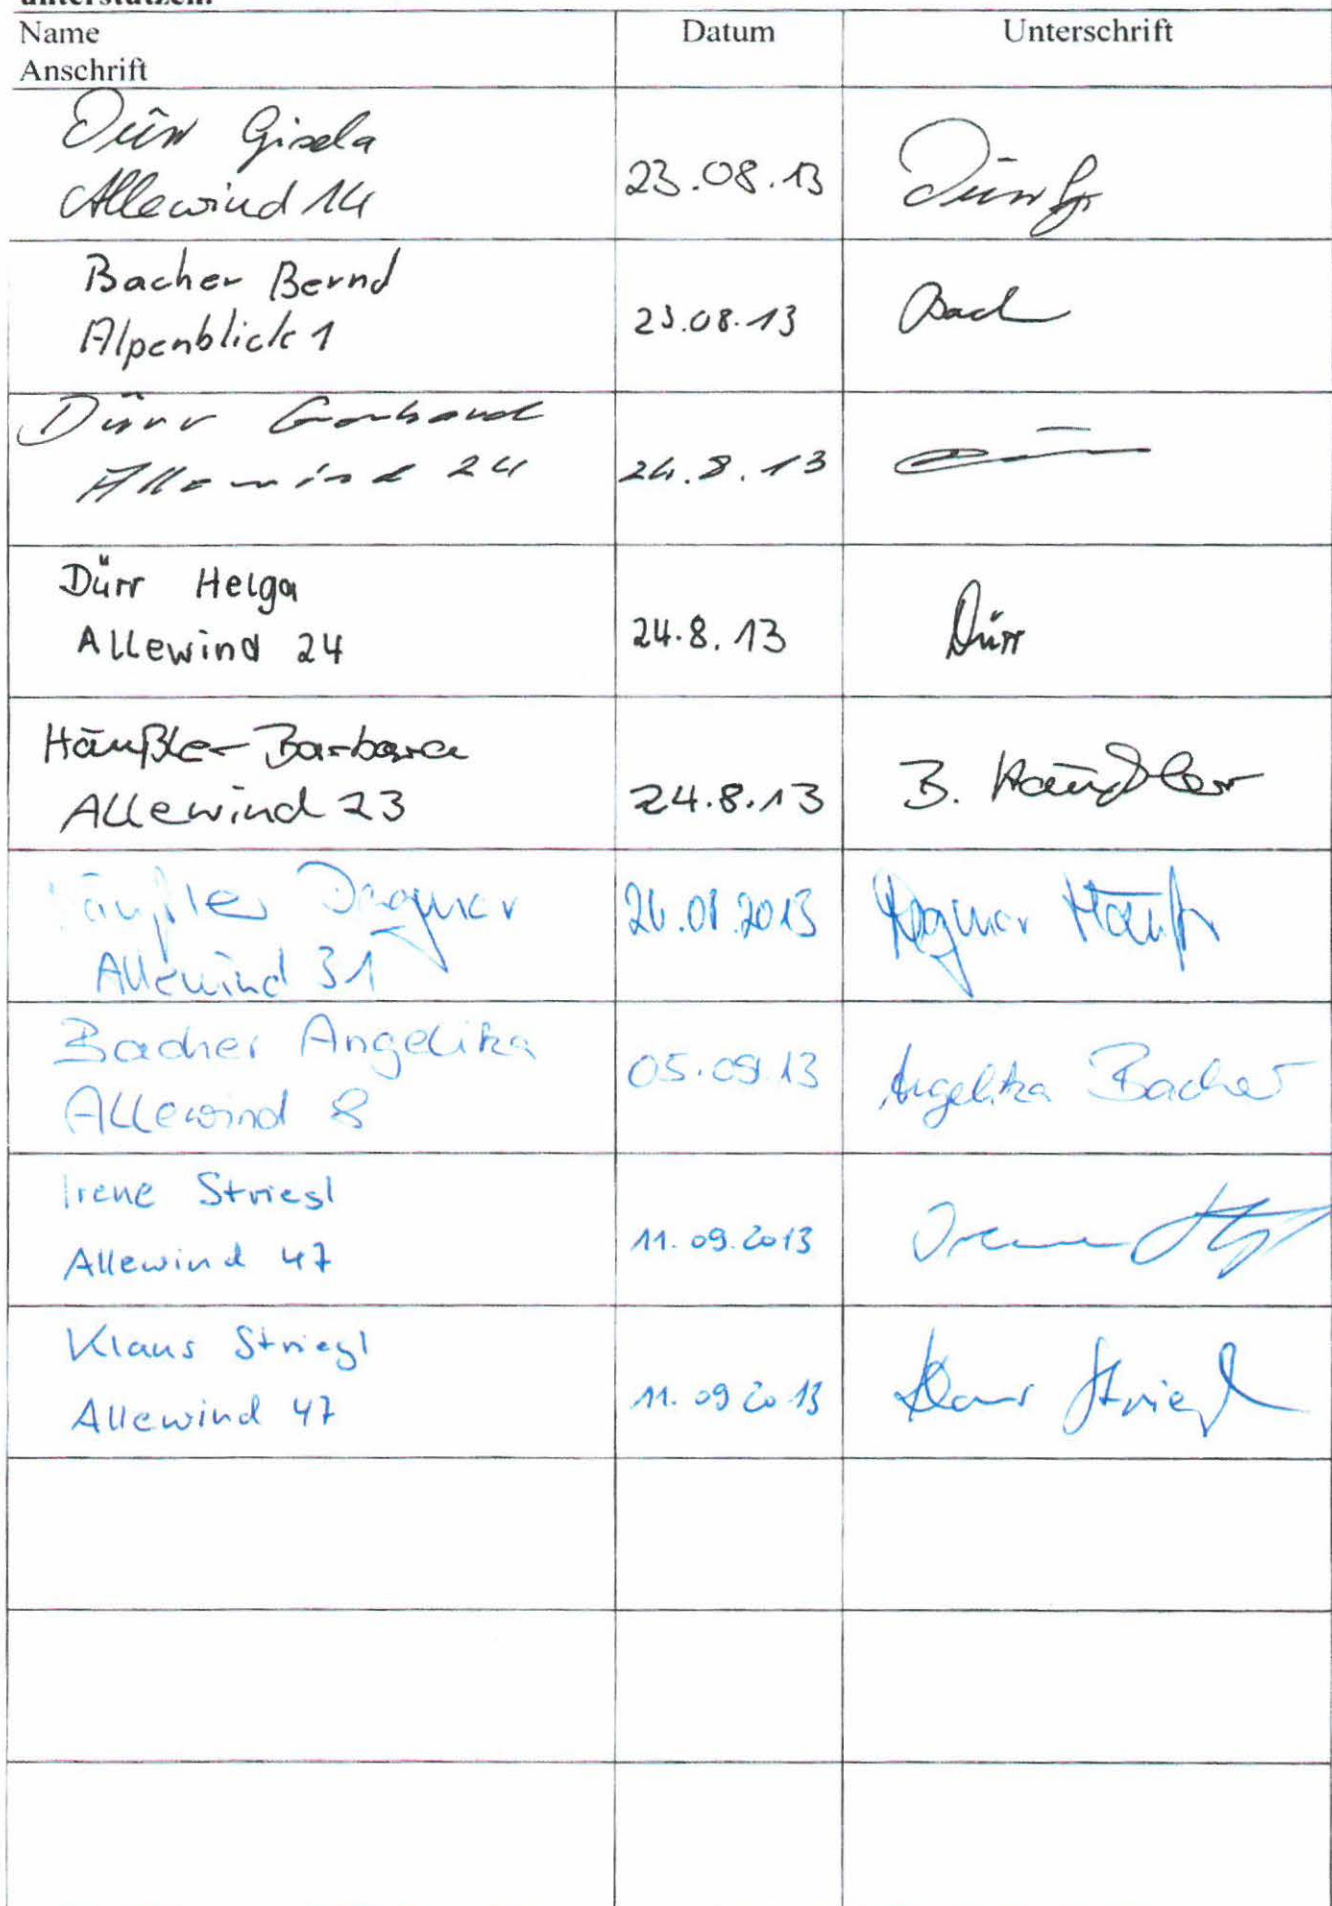 unterstützen.
Name Datum Unterschrift
Anschrift
Dürr Gisela
Allewind 14 23.08.13 Dürr
Bacher Bernd
Alpenblick 1 23.08.13 Bach
Dürr Gerhard
Allewind 24 24.8.13
Dürr Helga
Allewind 24 24.8.13 Dürr
Häußler Barbara
Allewind 23 24.8.13 B. Häußler
Häußler Dagmar 26.08.2013 Dagmar Häußler
Allewind 31
Bacher Angelika
Allewind 8 05.09.13 Angelika Bacher
Irene Striegl
Allewind 47 11.09.2013 Irene
Klaus Striegl
Allewind 47 11.09.2013 Klaus Striegl